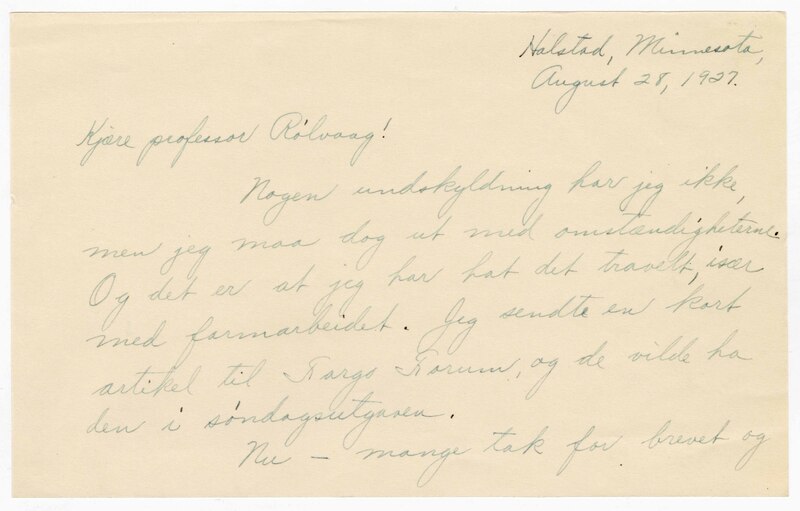 Halstad, Minnesota,
August 28, 1927.
Kjære professor Rölvaag!
Nogen undskyldning har jeg ikke,
men jeg maa dog ut med omstændigheterne.
Og det er at jeg har hat det travelt, især
med farmarbeidet. Jeg sendte en kort
artikel til Fargo Forum, og de vilde ha
den i söndagsutgaven.
Nu – mange tak for brevet og